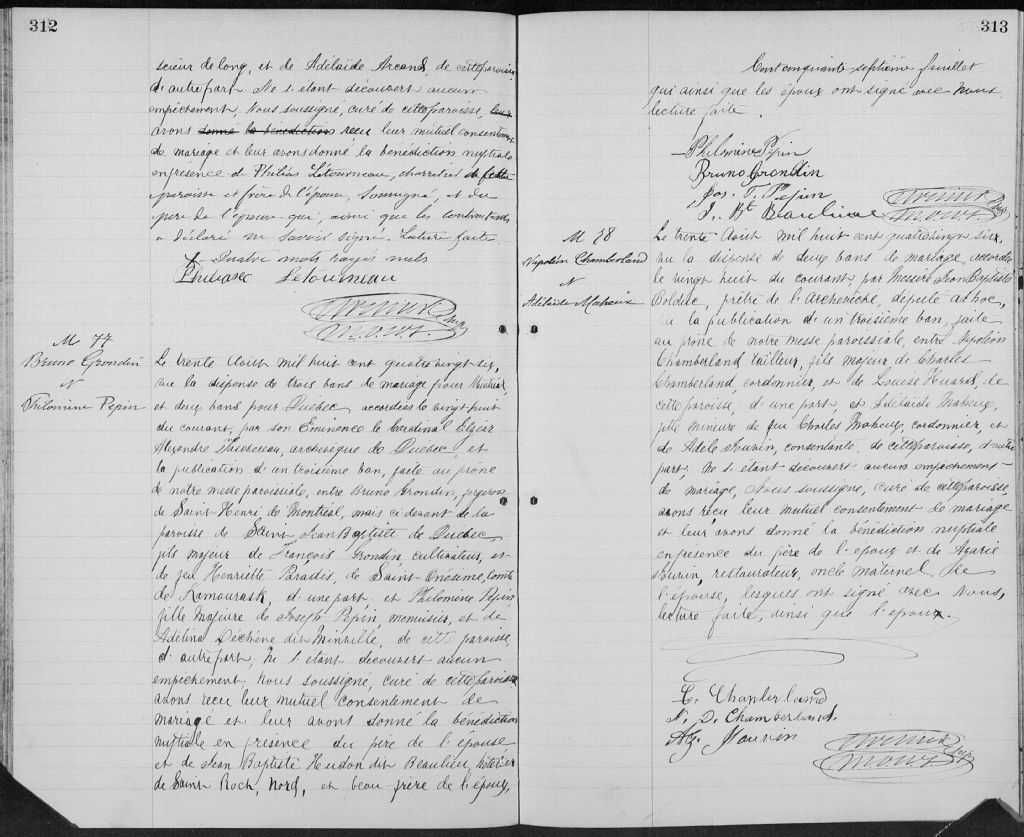 312
scieur de long, et de Adélaïde Arcand, de cette paroisse,
d'autre part. Ne s'étant découvert aucun
empêchement, Nous soussigné, curé de cette paroisse, leur
avons donné la bénédiction reçu leur mutuel consentement
de mariage et leur avons donné la bénédiction nuptiale
en présence de Philéas Létourneau, charretier de cette
paroisse et frère de l'épouse, soussigné, et du
père de l'épouse qui, ainsi que les contractants
a déclaré ne savoir signé. Lecture faite.
Quatre mots rayés nuls
Létourneau
M 77
Bruno Grondin
&
Philomine Pepin
Le trente Août mil huit cent quatre vingt six,
vu la dispense de trois bans de mariage pour Montréal,
et deux bans pour Québec accordées le vingt huit
du courant, par son Eminence le Cardinal Elzéar
Alexandre Taschereau, archevêque de Québec, et
la publication d'un troisième ban, faite au prône
de notre messe paroissiale, entre Bruno Grondin, forgeron
de Saint Henri de Montréal, mais ci-devant de la
paroisse de Saint Jean Baptiste de Québec
fils majeur de François Grondin, cultivateur, et
de feu Henriette Paradis, de Saint Onésime, comté
de Kamourask, d'une part et Philomine Pepin
fille majeure de Joseph Pepin, menuisier, et de
Adelina Dechêne dit Minville, de cette paroisse,
d'autre part; Ne s'étant découvert aucun
empêchement, Nous soussigné, curé de cette paroisse
avons reçu leur mutuel consentement de
mariage et leur avons donné la bénédiction
nuptiale en présence du père de l'épouse
et de Jean Baptiste Hudon dit Beaulieu, hôtelier
de Saint Roch, Nord, et beau frère de l'époux,
313
Cent cinquante-septième feuillet
qui ainsi que les époux ont signé avec Nous.
lecture faite.
Philomine Pepin
Bruno Grondin
Jos. T. Pepin
J. Bt Beaulieu
M 78
Napoléon Chamberland
&
Adélaïde Maheux
Le trente Août mil huit cent quatre vingt six,
vu la dispense de deux bans de mariage, accordée
le vingt huit du courant, par Messire Jean Baptiste
Bolduc, prêtre de l'Archevêché, député ad hoc,
vu la publication d'un troisième ban, faite
au prône de notre messe paroissiale, entre Napoléon
Chamberland, tailleur, fils majeur de Charles
Chamberland, cordonnier, et de Louise Huard, de
cette paroisse, d'une part, et Adélaïde Maheux,
fille mineure de feu Charles Maheux, cordonnier, et
de Adèle Jouvin, consentante, de cette paroisse, d'autre
part, Ne s'étant découvert aucun empêchement
de mariage, Nous soussigné, curé de cette paroisse,
avons reçu leur mutuel consentement de mariage
et leur avons donné la bénédiction nuptiale
en présence du père de l'époux et de Azarie
Jouvin, restaurateur, oncle maternel de
l'épouse, lesquels ont signé avec Nous,
lecture faite, ainsi que l'époux.
C. Chamberland
N. D. Chamberland.
Az. Jouvin